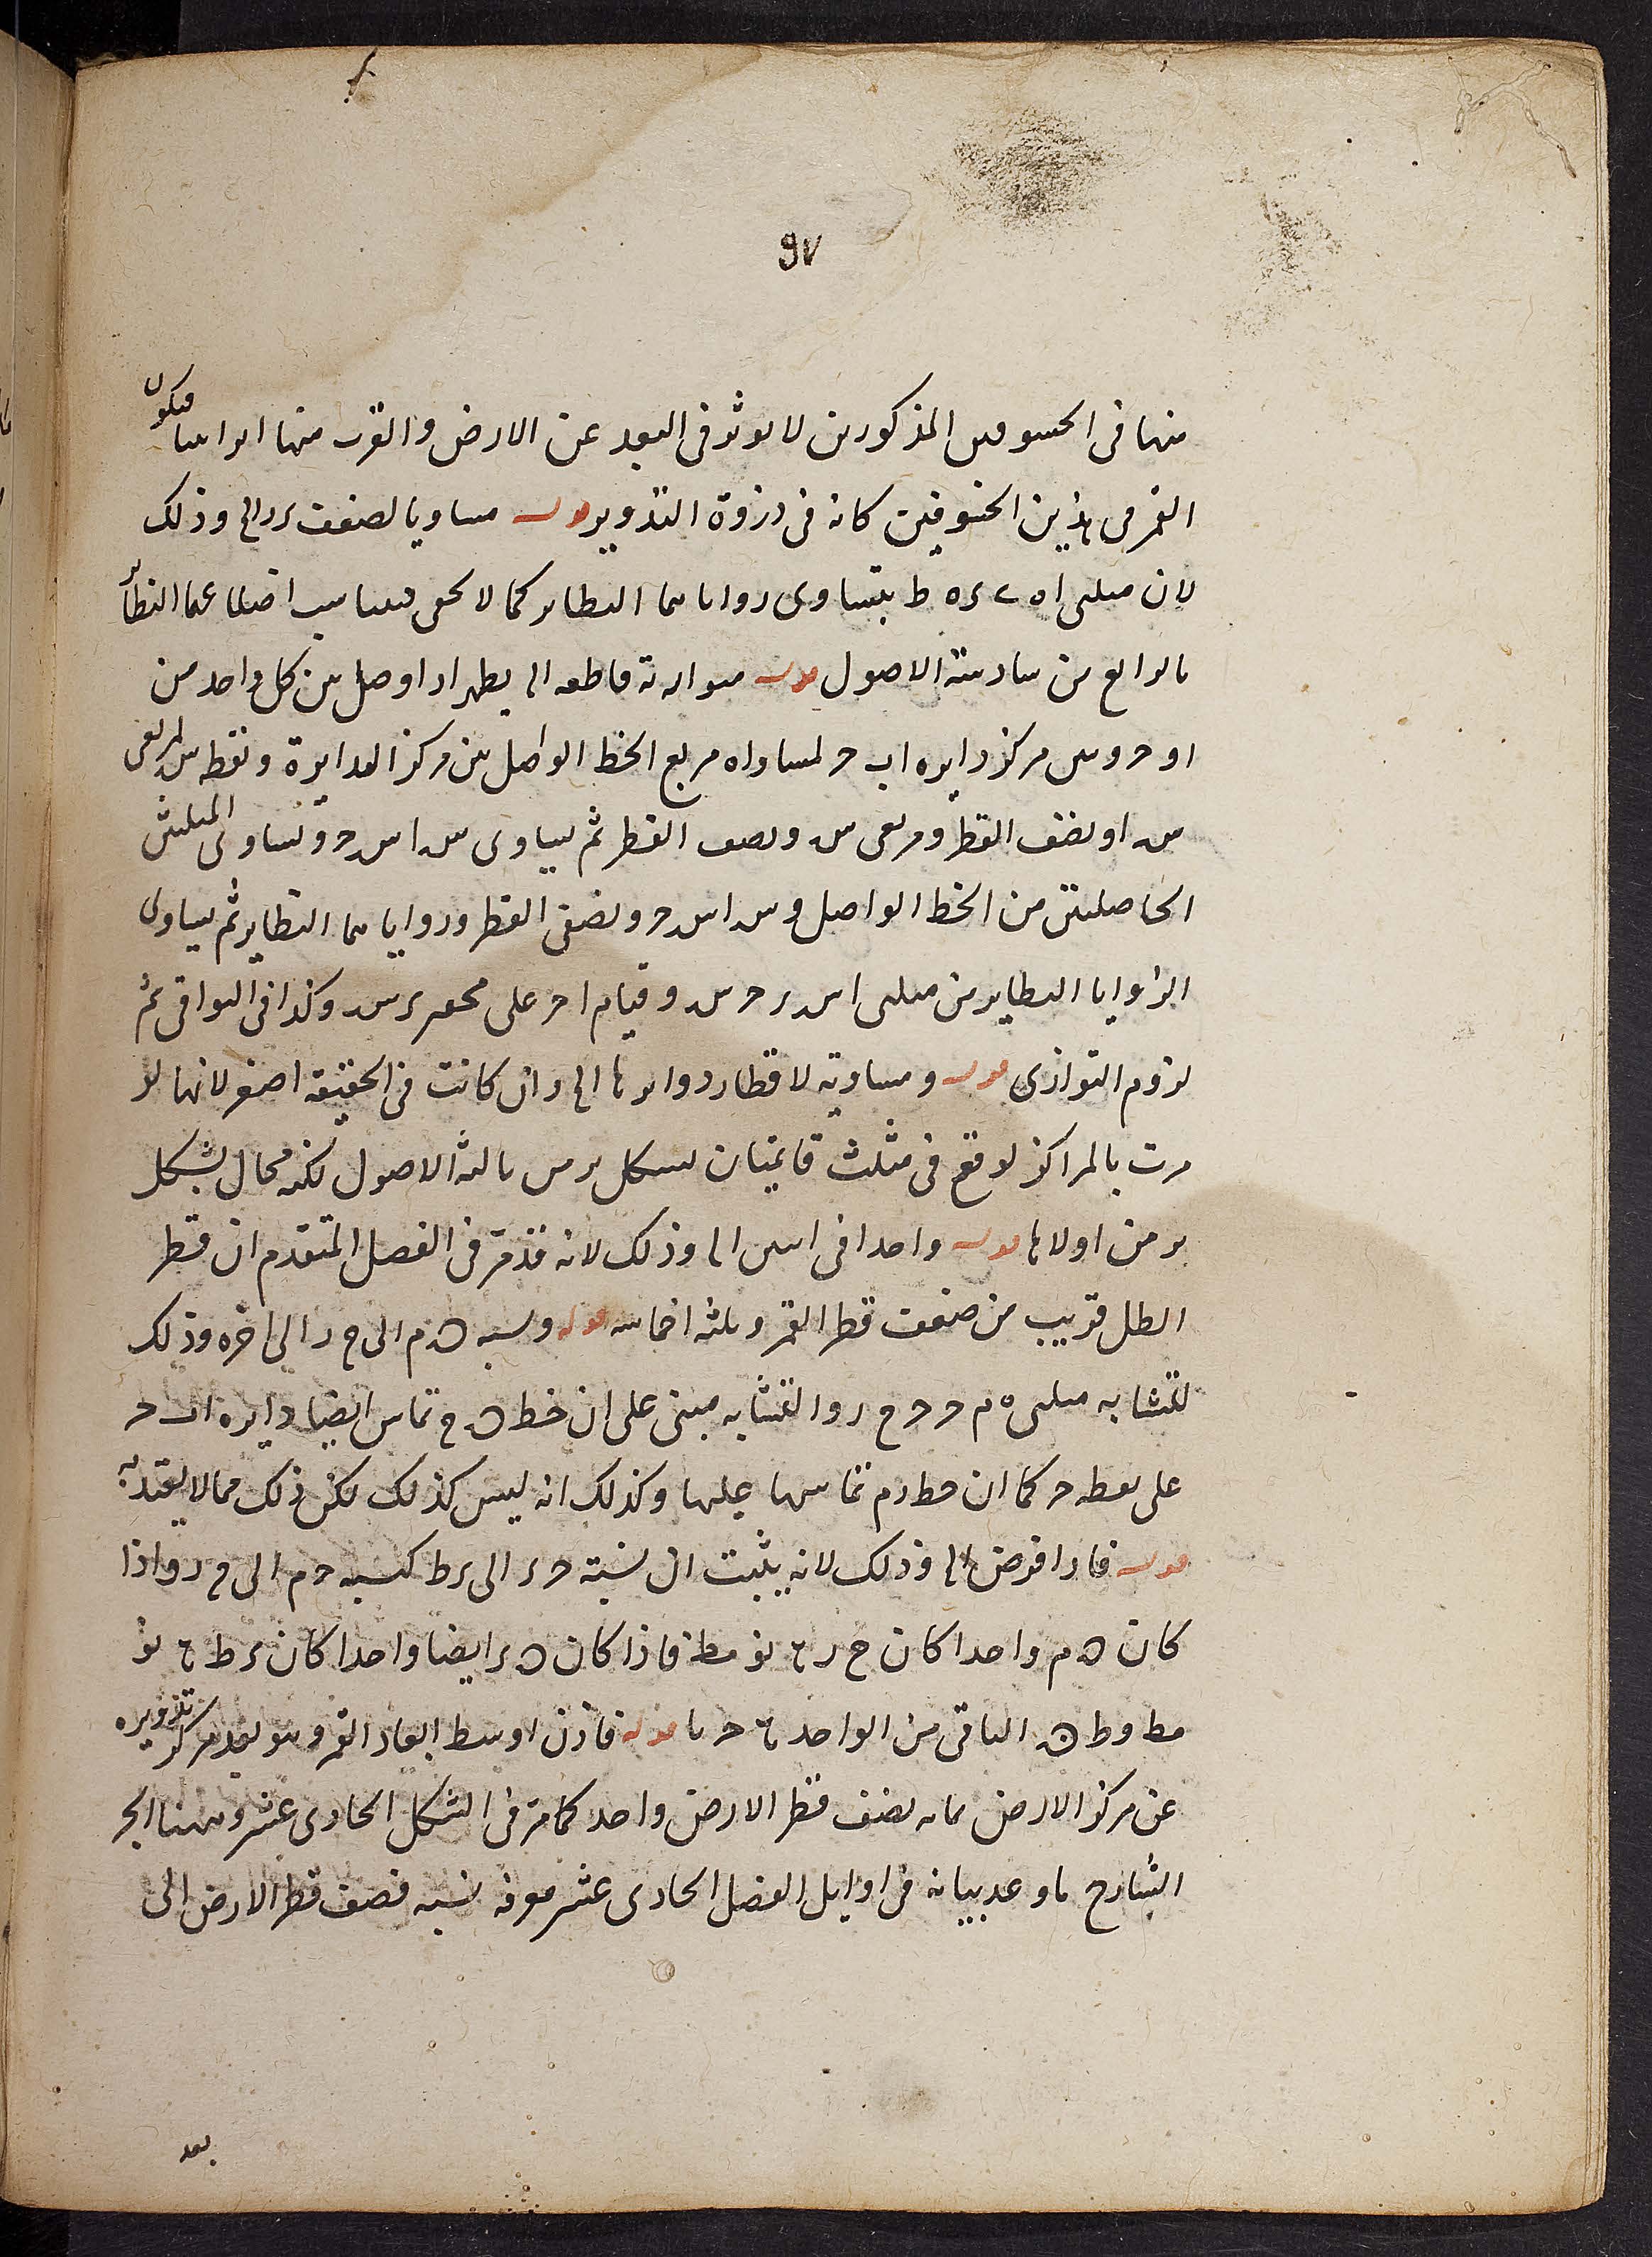 97
منها فى الخسوفين المذكورين لا يوثر فى البعد عن الارض والقرب منها اثرا بينا فيكون
القمر فى هذين الخسوفين كانه فى ذروة التدوير قوله مساويا لضعف ر د الخ وذلك
لان مثلثى ا ه ى ه ط بتساوى زواياهما النظاير كما لا يخفى فيتناسب اضلاعهما النظائر
بالرابع من سادسة الاصول قوله متوازية قاطعة الخ يظهر اذا وصل بين كل واحد من
ا و ح وبين مركز دايره ا ب ح لمساواه مربع الخط الواصل بين مركز الدايرة ونقطه س لمربعى
س ا ونصف القطر ومربعى س ونصف القطر ثم بتساوى س ا س ح وتساوى المثلثين
الحاصلتين من الخط الواصل وس ا س ح ونصفى القطر وزواياهما النظاير ثم بتساوى
الزوايا النظاير من مثلثى ا س ر ح س وقيام ا ح على محور ر س وكذا فى البواقى ثم
لزوم التوازى قوله ومساوية لاقطار دوايرها الخ وان كانت فى الحقيقه اصغر لانها لو
مرت بالمراكز لوقع فى مثلث قايمتان بشكل يو من ثالثة الاصول لكنه محال بشكل
يو من اولاها قوله واحدا فى اثنين الخ وذلك لانه قد مر فى الفصل المتقدم ان قطر
الظل قريب من ضعف قطر القمر وثلثة اخماسه قوله ونسبه ه م الى ح ر الى اخره وذلك
لتشابه مثلثى ه م ح ح ح ر والتشابه مبنى على ان خط ه ح تماس ايضا دايره ا ب ح
على نقطه ح كما ان خط ر م تماسها عليها وكذلك انه ليس كذلك لكن ذلك مما لا يعتد به
قوله فاذا فرض الخ وذلك لانه يثبت ان نسبة ح ر الى ر ط كنسبه ح م الى ح ر واذا
كان ه م واحدا كان ح ر ٤ نو مط فاذا كان ه ر ايضا واحدا كان ر ط ٤ نو
مط و ط ه الباقى من الواحد ٤ ح يا قوله فاذن اوسط ابعاد القمر وهو بعد مركز تدويره
عن مركز الارض بما به نصف قطر الارض واحد كما مر فى الشكل الحادى عشر وههنا انجز
الشارح ما وعد ببيانه فى اوايل الفصل الحادى عشر معرفه نسبه نصف قطر الارض الى
بعد